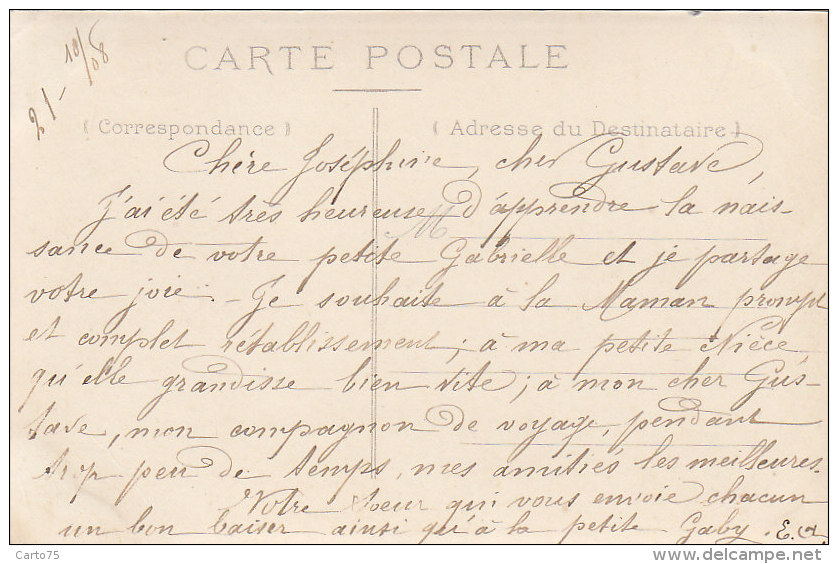 21-10/08
CARTE POSTALE
( Correspondance )
( Adresse du Destinataire )
Chère Joséphine, cher Gustave,
J'ai été très heureuse d'apprendre la nais-
sance de votre petite Gabrielle et je partage
votre joie. - Je souhaite à la Maman prompt
et complet rétablissement; à ma petite Nièce
qu'elle grandisse bien vite; à mon cher Gus-
tave, mon compagnon de voyage, pendant
trop peu de temps, mes amitiés les meilleures.
Votre Soeur qui vous envoie chacun
un bon baiser ainsi qu'à la petite Gaby.
Carto75
delcampe.net